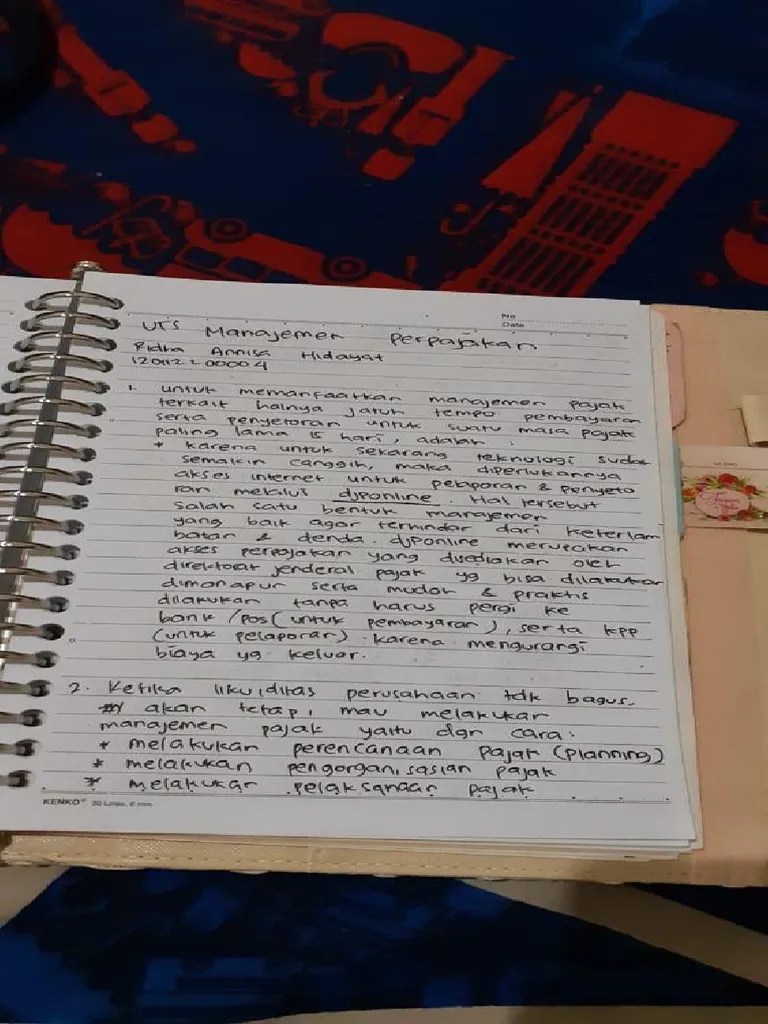 No
Date
UTS Manajemen Perpajakan
Ridha Annisa Hidayat
1. untuk memanfaatkan manajemen pajak
terkait halnya jatuh tempo pembayaran
serta penyetoran untuk suatu masa pajak
paling lama 15 hari, adalah :
* karena untuk sekarang teknologi sudah
semakin canggih, maka diperlukannya
akses internet untuk pelaporan & penyeto
ran melalui djponline. Hal tersebut
salah satu bentuk manajemen
yang baik agar terhindar dari keterlam
batan & denda. djponline merupakan
akses perpajakan yang disediakan oleh
direktorat jenderal pajak yg bisa dilakukan
dimanapun serta mudah & praktis
dilakukan tanpa harus pergi ke
bank /pos (untuk pembayaran), serta KPP
(untuk pelaporan). karena mengurangi
biaya yg keluar.
2. Ketika likuiditas perusahaan tdk bagus.
akan tetapi mau melakukan
manajemen pajak yaitu dgn cara:
* melakukan perencanaan pajak (planning)
* melakukan pengorganisasian pajak
* melakukan pelaksanaan pajak
KENKO 20 Lines, 8 mm